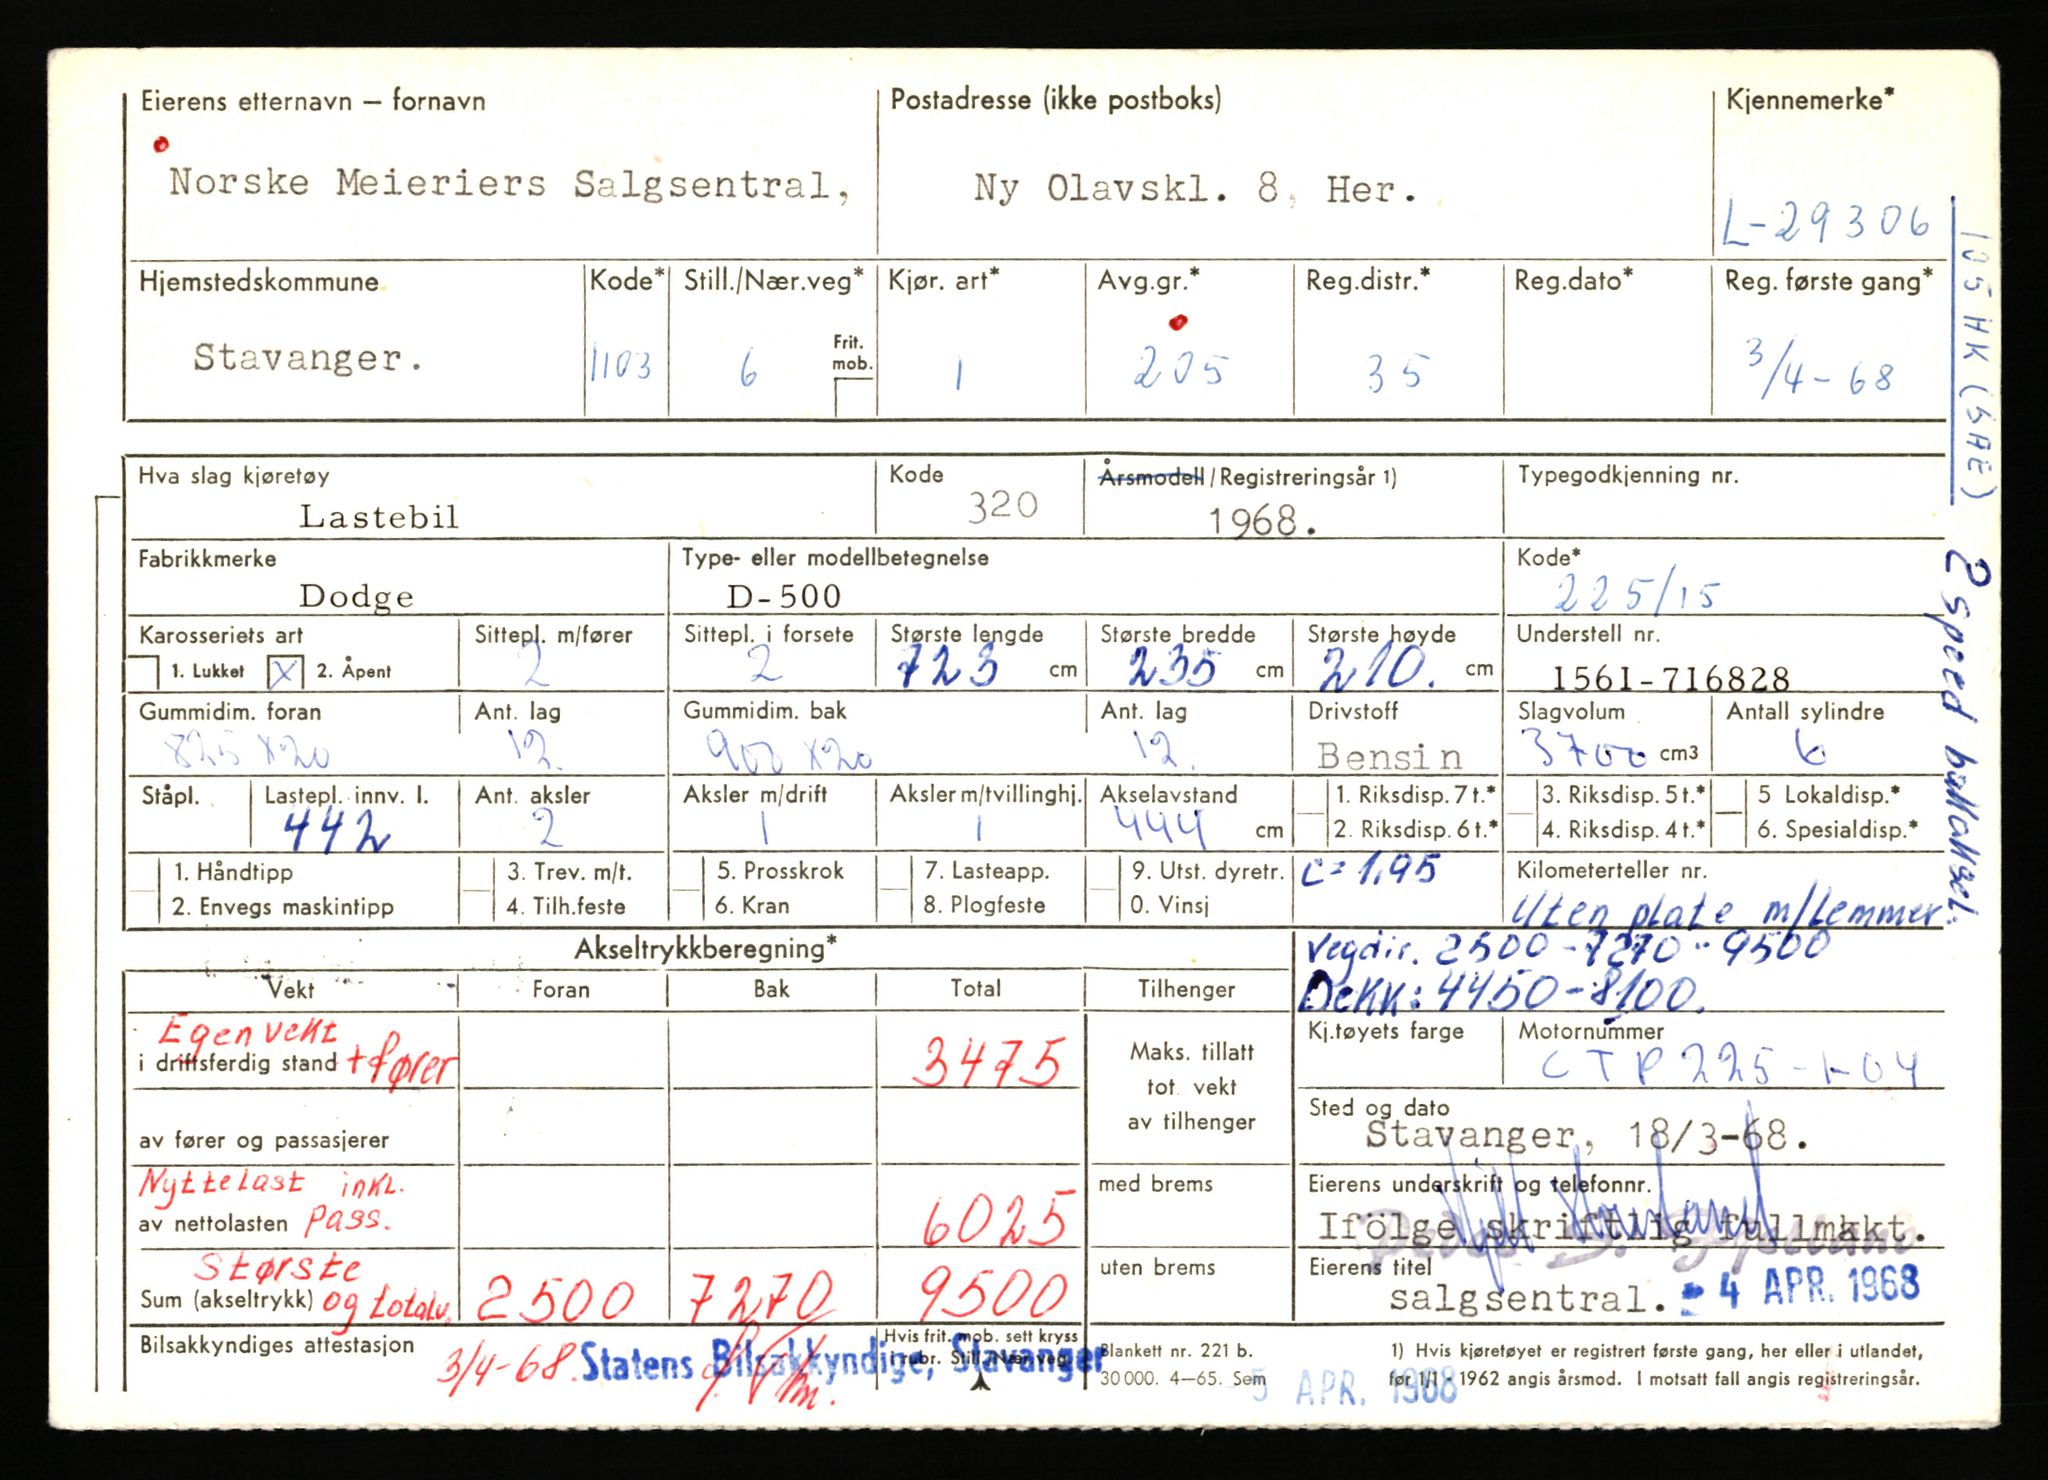 Eierens etternavn – fornavn
Postadresse (ikke postboks)
Kjennemerke*
Norske Meieriers Salgsentral,
Ny Olavskl. 8, Her.
L-29306
Hjemstedskommune
Kode*
Still./Nær.veg*
Kjør. art*
Avg.gr.*
Reg.distr.*
Reg.dato*
Reg. første gang*
Stavanger.
1103
6
Frit. mob.
1
205
35
3/4-68
105 HK (SAE)
2 speed bakaksel.
Hva slag kjøretøy
Kode
Årsmodell / Registreringsår 1)
Typegodkjenning nr.
Lastebil
320
1968.
Fabrikkmerke
Type- eller modellbetegnelse
Kode*
Dodge
D-500
225/15
Karosseriets art
Sittepl. m/fører
Sittepl. i forsete
Største lengde
Største bredde
Største høyde
Understell nr.
1. Lukket X 2. Åpent
2
2
723 cm
235 cm
210. cm
1561-716828
Gummidim. foran
Ant. lag
Gummidim. bak
Ant. lag
Drivstoff
Slagvolum
Antall sylindre
825 x20
12.
900 x20
12.
Bensin
3700 cm3
6
Ståpl.
Lastepl. innv. l.
Ant. aksler
Aksler m/drift
Aksler m/tvillinghj.
Akselavstand
1. Riksdisp. 7 t.*
3. Riksdisp. 5 t.*
5 Lokaldisp.*
442
2
1
1
444 cm
2. Riksdisp. 6 t.*
4. Riksdisp. 4 t.*
6. Spesialdisp.*
1. Håndtipp
3. Trev. m/t.
5. Prosskrok
7. Lasteapp.
9. Utst. dyretr.
C=1.95
Kilometerteller nr.
2. Envegs maskintipp
4. Tilh.feste
6. Kran
8. Plogfeste
0. Vinsj
Uten plate m/Lemmer.
Akseltrykkberegning*
Vegdir. 2500-7270-9500
Vekt
Foran
Bak
Total
Tilhenger
Dekk: 4450-8100.
Egenvekt
i driftsferdig stand + fører
3475
Maks. tillatt
tot. vekt
av tilhenger
Kj.tøyets farge
Motornummer
CTP225-1-04
av fører og passasjerer
Sted og dato
Stavanger, 18/3-68.
Nyttelast inkl.
av nettolasten Pass.
6025
med brems
Eierens underskrift og telefonnr.
Ifölge skriftlig fullmakt.
Største
Sum (akseltrykk) og totalv.
2500
7270
9500
uten brems
Eierens titel
salgsentral.
- 4 APR. 1968
Bilsakkyndiges attestasjon
3/4-68.
Statens Bilsakkyndige, Stavanger
Hvis frit. mob. sett kryss
i rubr. Still./Nær.veg.
Blankett nr. 221 b.
30 000. 4–65. Sem
- 5 APR. 1968
1) Hvis kjøretøyet er registrert første gang, her eller i utlandet,
før 1/1 - 1962 angis årsmod. I motsatt fall angis registreringsår.